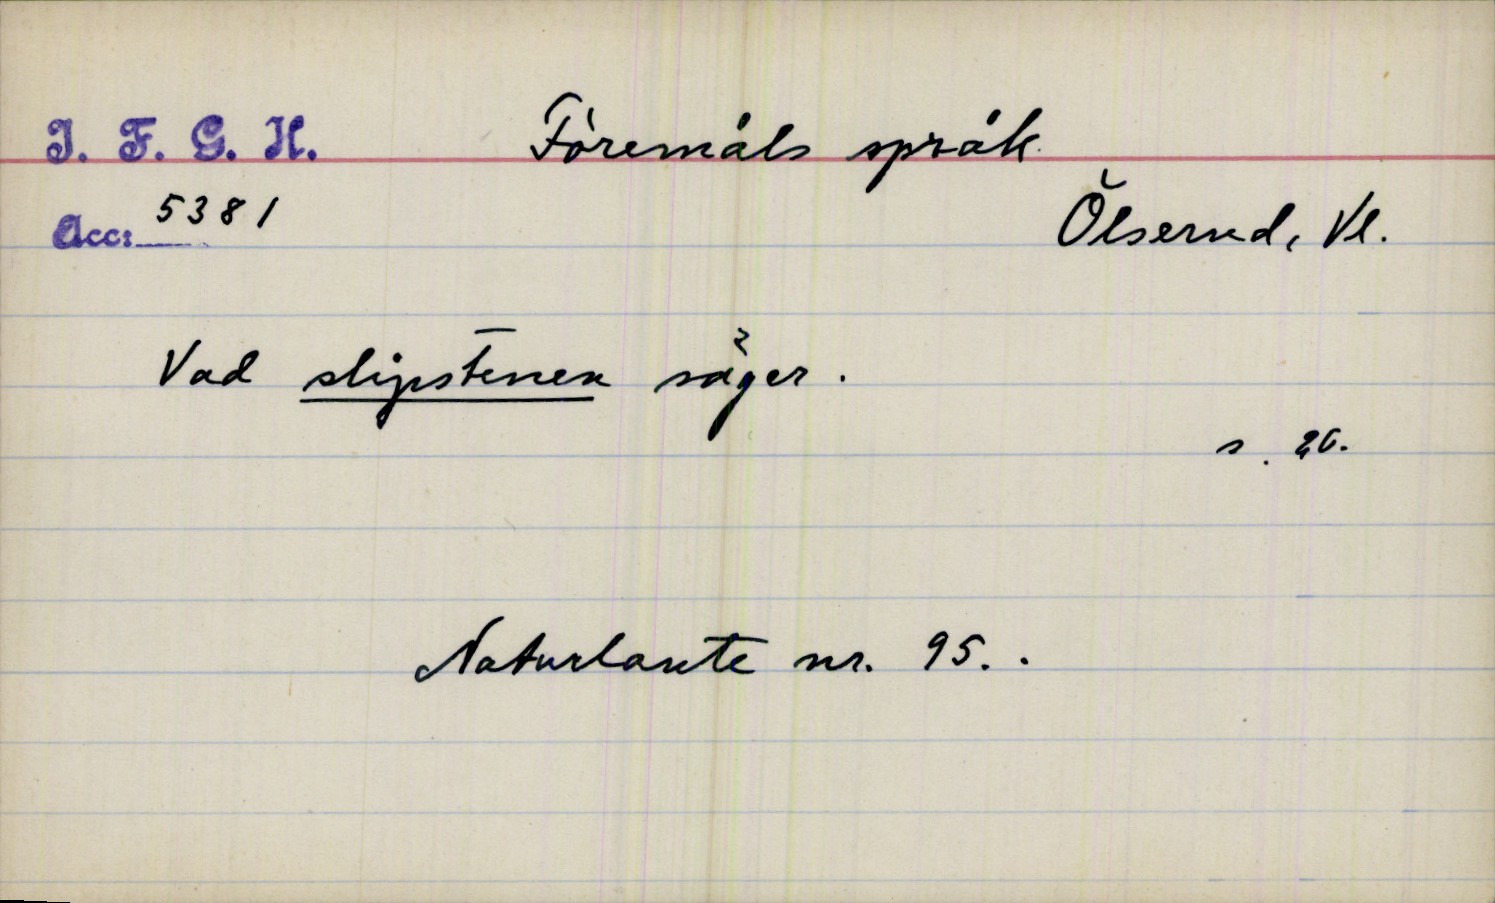 I. F. G. H.
Föremåls språk.
Acc: 5381
Ölserud, Vl.
Vad slipstenen säger.
s. 26.
Naturlaute nr. 95.